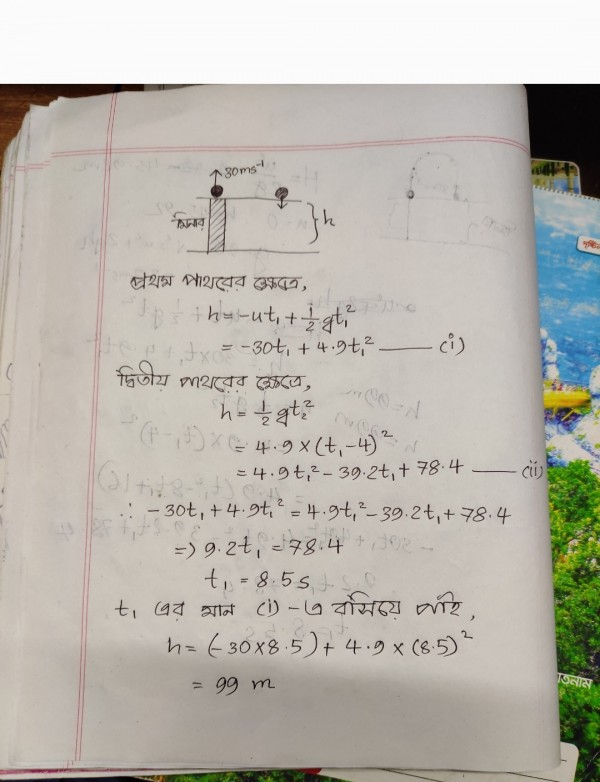 30ms⁻¹
মিনার
h
প্রথম পাথরের ক্ষেত্রে,
h = -ut₁ + ½gt₁²
= -30t₁ + 4.9t₁² —— (i)
দ্বিতীয় পাথরের ক্ষেত্রে,
h = ½gt₂²
= 4.9 × (t₁-4)²
= 4.9t₁² - 39.2t₁ + 78.4 —— (ii)
∴ -30t₁ + 4.9t₁² = 4.9t₁² - 39.2t₁ + 78.4
=> 9.2t₁ = 78.4
t₁ = 8.5 s
t₁ এর মান (i) -এ বসিয়ে পাই,
h = (-30×8.5) + 4.9 × (8.5)²
= 99 m